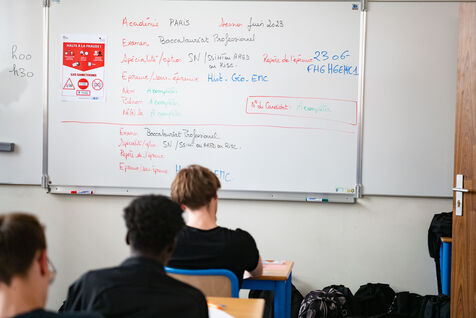 h00
h30
HALTE À LA FRAUDE
LES SANCTIONS
Académie PARIS Session Juin 2023
Examen Baccalauréat Professionnel
Spécialité/option SN/SSIHT ou ARED ou RISC.
Repère de l'épreuve 2306-FHG HGEMC1
Epreuve/sous-épreuve Hist-Géo-EMC
Nom A compléter
Prénom A compléter
Né(e) le A compléter
N° du Candidat A compléter
Examen Baccalauréat Professionnel
Spécialité/opt° SN/SSIHT ou ARED ou RISC.
Repère de l'épreuve
Epreuve/sous-épreuve